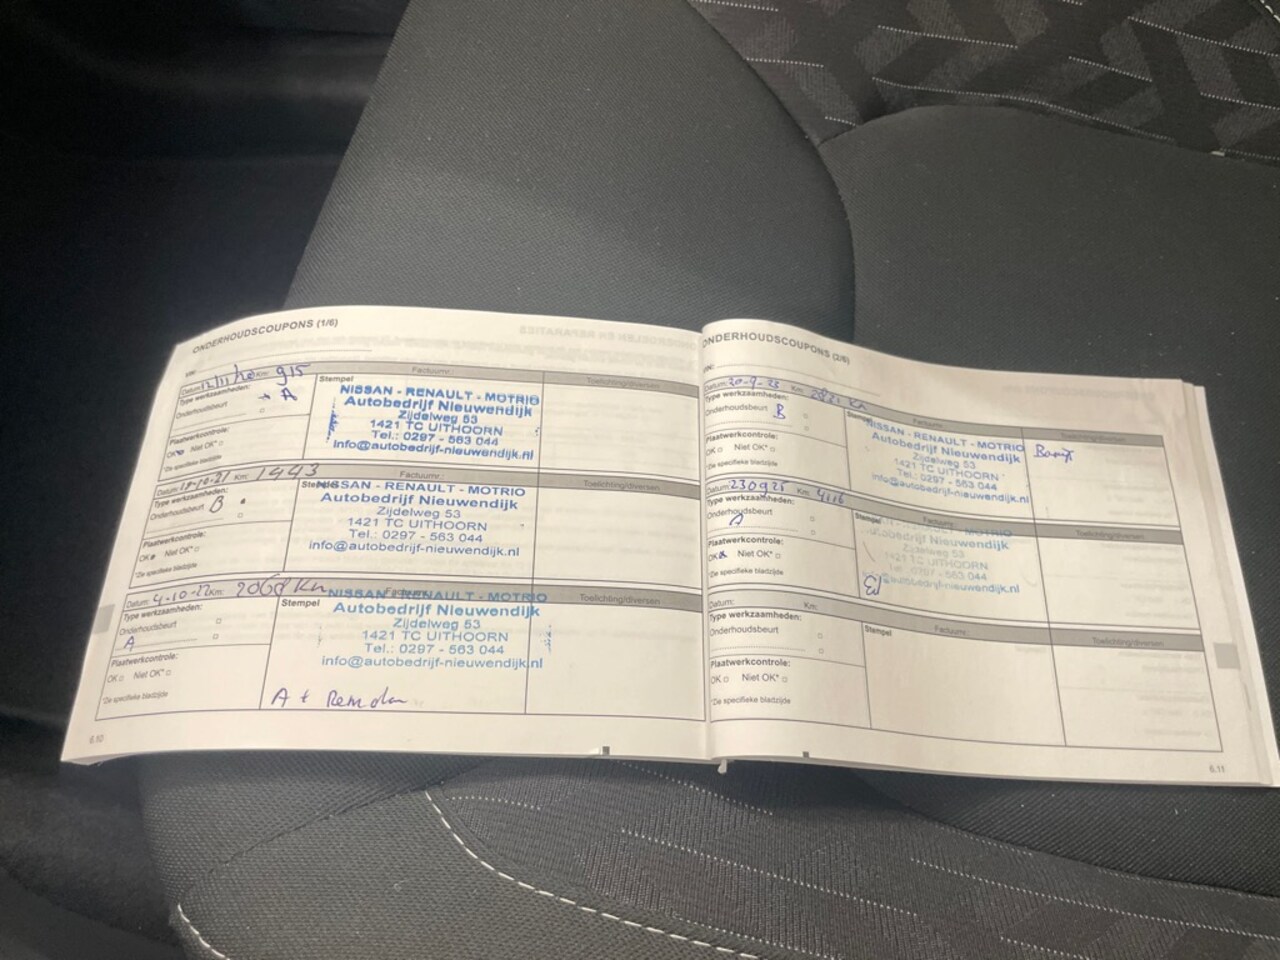 ONDERHOUDSCOUPONS (1/6)
VIN:
Datum: 12/11/20 Km: 915
Factuurnr.:
Type werkzaamheden: A
Onderhoudsbeurt
Plaatwerkcontrole:
OK Niet OK*
*De specifieke bladzijde
Stempel
NISSAN - RENAULT - MOTRIO
Autobedrijf Nieuwendijk
Zijdelweg 53
1421 TC UITHOORN
Tel.: 0297 - 563 044
info@autobedrijf-nieuwendijk.nl
Toelichting/diversen
Datum: 18-10-21 1943
Factuurnr.:
Type werkzaamheden:
Onderhoudsbeurt B
Plaatwerkcontrole:
OK Niet OK*
*De specifieke bladzijde
Stempel
NISSAN - RENAULT - MOTRIO
Autobedrijf Nieuwendijk
Zijdelweg 53
1421 TC UITHOORN
Tel.: 0297 - 563 044
info@autobedrijf-nieuwendijk.nl
Toelichting/diversen
Datum: 4-10-22 Km: 2068 Km
Type werkzaamheden:
Onderhoudsbeurt
A
Plaatwerkcontrole:
OK Niet OK*
*De specifieke bladzijde
Stempel
NISSAN - RENAULT - MOTRIO
Autobedrijf Nieuwendijk
Zijdelweg 53
1421 TC UITHOORN
Tel.: 0297 - 563 044
info@autobedrijf-nieuwendijk.nl
A +
Toelichting/diversen
6.10
ONDERHOUDSCOUPONS (2/6)
VIN:
Datum: 20-9-23 Km:
Factuurnr.:
Type werkzaamheden:
Onderhoudsbeurt B
Plaatwerkcontrole:
OK Niet OK*
*De specifieke bladzijde
NISSAN - RENAULT - MOTRIO
Autobedrijf Nieuwendijk
Zijdelweg 53
1421 TC UITHOORN
Tel.: 0297 - 563 044
info@autobedrijf-nieuwendijk.nl
Toelichting/diversen
Datum: 230925 Km: 4116
Factuurnr.:
Type werkzaamheden:
Onderhoudsbeurt
A
Plaatwerkcontrole:
OK Niet OK*
*De specifieke bladzijde
Stempel
NISSAN - RENAULT - MOTRIO
Autobedrijf Nieuwendijk
Zijdelweg 53
1421 TC UITHOORN
Tel.: 0297 - 563 044
info@autobedrijf-nieuwendijk.nl
Toelichting/diversen
Datum: Km:
Type werkzaamheden:
Onderhoudsbeurt
Plaatwerkcontrole:
OK Niet OK*
*De specifieke bladzijde
Stempel
Factuurnr.:
Toelichting/diversen
6.11